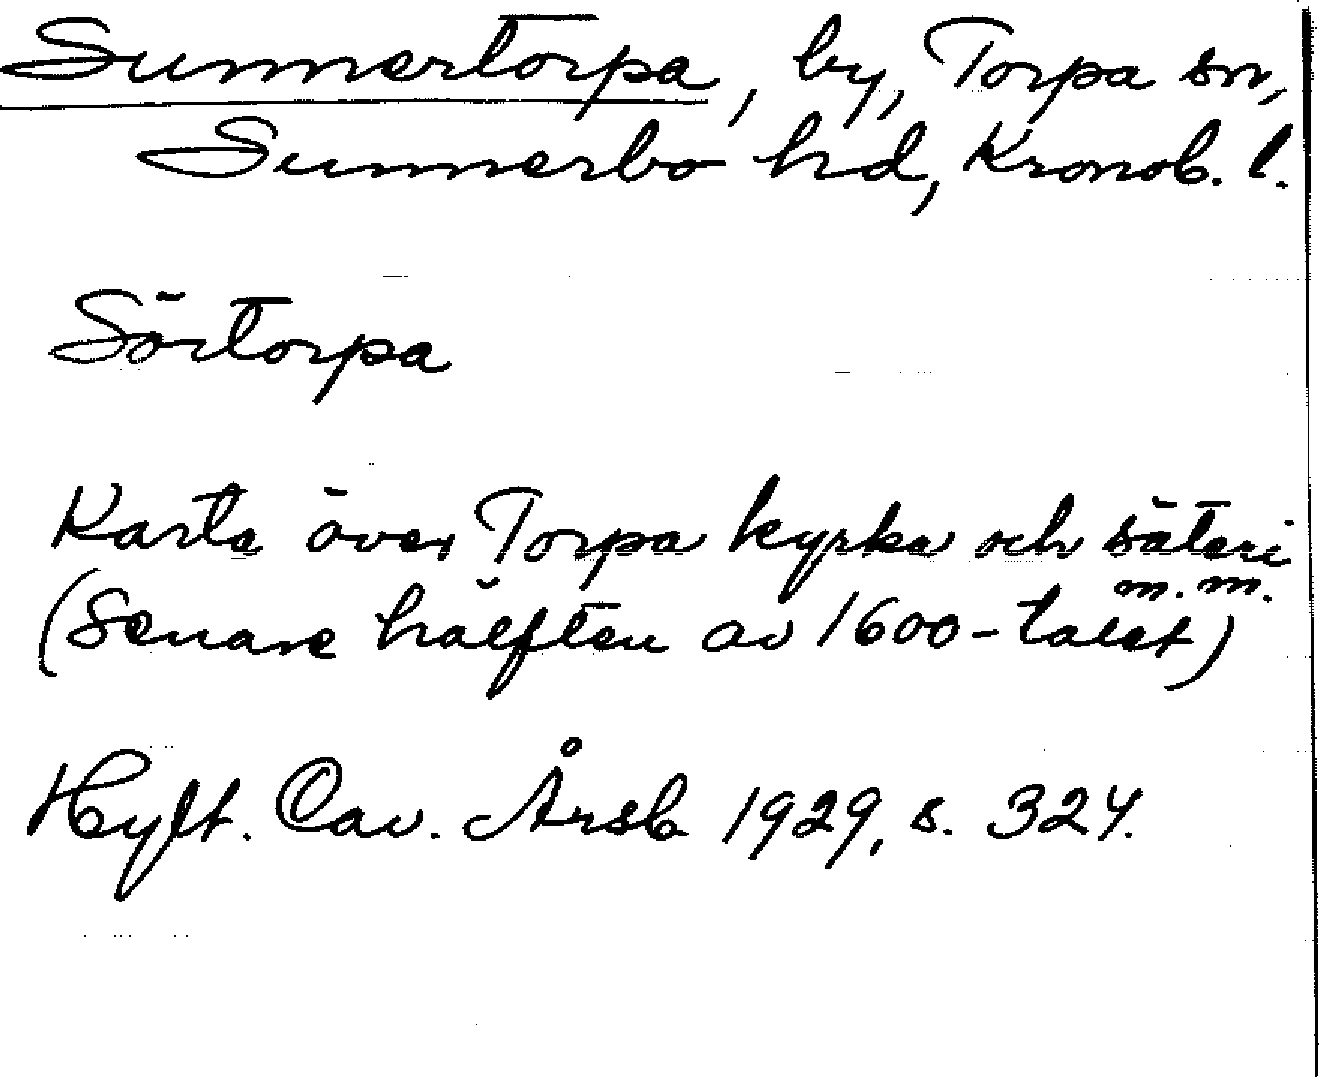 Sunnertorpa, by, Torpa sn,
Sunnerbo hd, Kronob. l.
Sörtorpa
Karta över Torpa kyrka och säteri
m.m.
(Senare hälften av 1600-talet)
Hylt. Cav. Årsb 1929, s. 324.